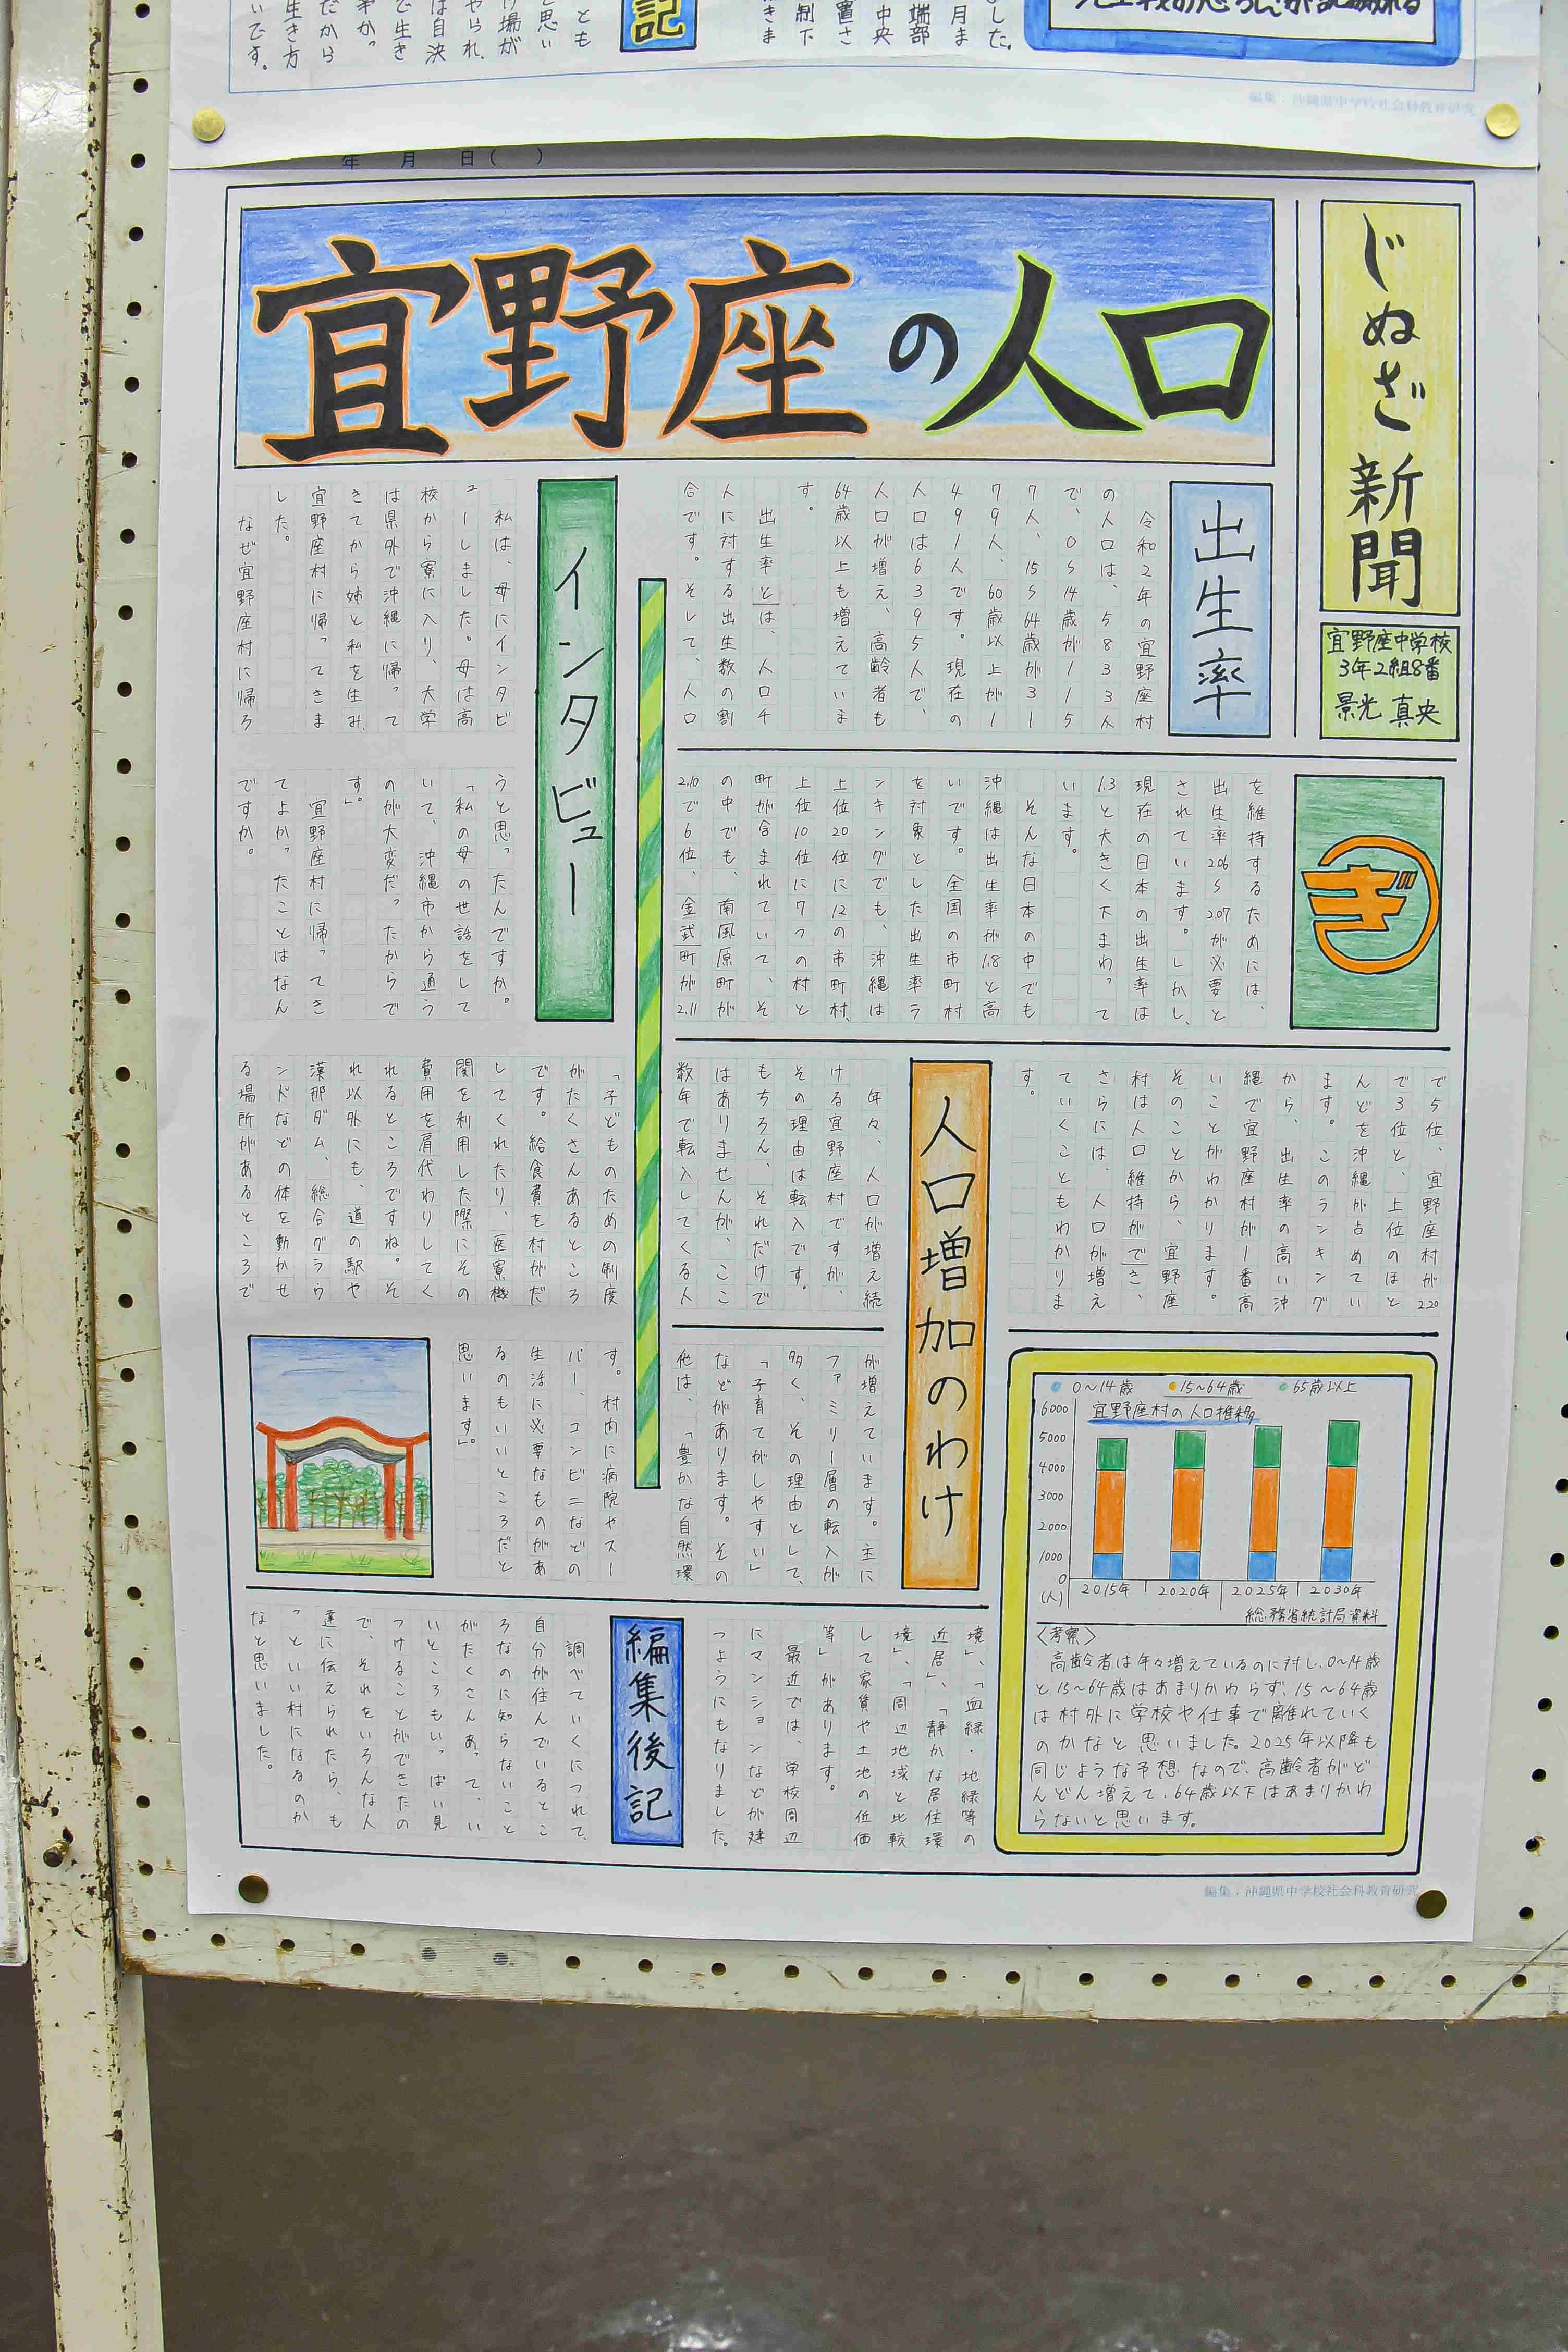 年　月　日(　)
じぬざ新聞
宜野座中学校
3年2組8番
景光 真央
宜野座の人口
出生率
令和2年の宜野座村
の人口は、5833人
で、0〜14歳が115
7人、15〜64歳が31
79人、60歳以上が1
491人です。現在の
人口は6395人で、
人口が増え、高齢者も
64歳以上も増えていま
す。
出生率とは、人口千
人に対する出生数の割
合です。そして、人口
を維持するためには、
出生率2.06〜2.07が必要と
されています。しかし、
現在の日本の出生率は
1.3と大きく下まわって
います。
そんな日本の中でも
沖縄は出生率が1.8と高
いです。全国の市町村
を対象とした出生率ラ
ンキングでも、沖縄は
上位20位に12の市町村、
上位10位に7つの村と
町が含まれていて、そ
の中でも、南風原町が
2.10で6位、金武町が2.11
で5位、宜野座村が2.20
で3位と、上位のほと
んどを沖縄が占めてい
ます。このランキング
から、出生率の高い沖
縄で宜野座村が1番高
いことがわかります。
そのことから、宜野座
村は人口維持ができ、
さらには、人口が増え
ていくこともわかりま
す。
人口増加のわけ
年々、人口が増え続
ける宜野座村ですが、
その理由は転入です。
もちろん、それだけで
はありませんが、ここ
数年で転入してくる人
が増えています。主に
ファミリー層の転入が
多く、その理由として、
「子育てがしやすい」
などがあります。その
他は、「豊かな自然環
境」、「血縁・地縁等の
近居」、「静かな居住環
境」、「周辺地域と比較
して家賃や土地の低価
等」があります。
最近では、学校周辺
にマンションなどが建
つようにもなりました。
インタビュー
私は、母にインタビ
ューしました。母は高
校から寮に入り、大学
は県外で沖縄に帰って
きてから姉と私を生み、
宜野座村に帰ってきま
した。
なぜ宜野座村に帰ろ
うと思ったんですか。
「私の母の世話をして
いて、沖縄市から通う
のが大変だったからで
す」。
宜野座村に帰ってき
てよかったことはなん
ですか。
「子どものための制度
がたくさんあるところ
です。給食費を村がだ
してくれたり、医療機
関を利用した際にその
費用を肩代わりしてく
れるところですね。そ
れ以外にも、道の駅や
漢那ダム、総合グラウ
ンドなどの体を動かせ
る場所があるところで
す。村内に病院やスー
パー、コンビニなどの
生活に必要なものがあ
るのもいいところだと
思います」。
編集後記
調べていくにつれて、
自分が住んでいるとこ
ろなのに知らないこと
がたくさんあって、い
いところもいっぱい見
つけることができたの
で、それをいろんな人
達に伝えられたら、も
っといい村になるのか
なと思いました。
0〜14歳　15〜64歳　65歳以上
宜野座村の人口推移
6000
5000
4000
3000
2000
1000
0
(人)
2015年　2020年　2025年　2030年
総務省統計局資料
〈考察〉
高齢者は年々増えているのに対し、0〜14歳
と15〜64歳はあまりかわらず、15〜64歳
は村外に学校や仕事で離れていく
のかなと思いました。2025年以降も
同じような予想なので、高齢者がど
んどん増えて、64歳以下はあまりかわ
らないと思います。
編集：沖縄県中学校社会科教育研究
ぎ
編集：沖縄県中学校社会科教育研究